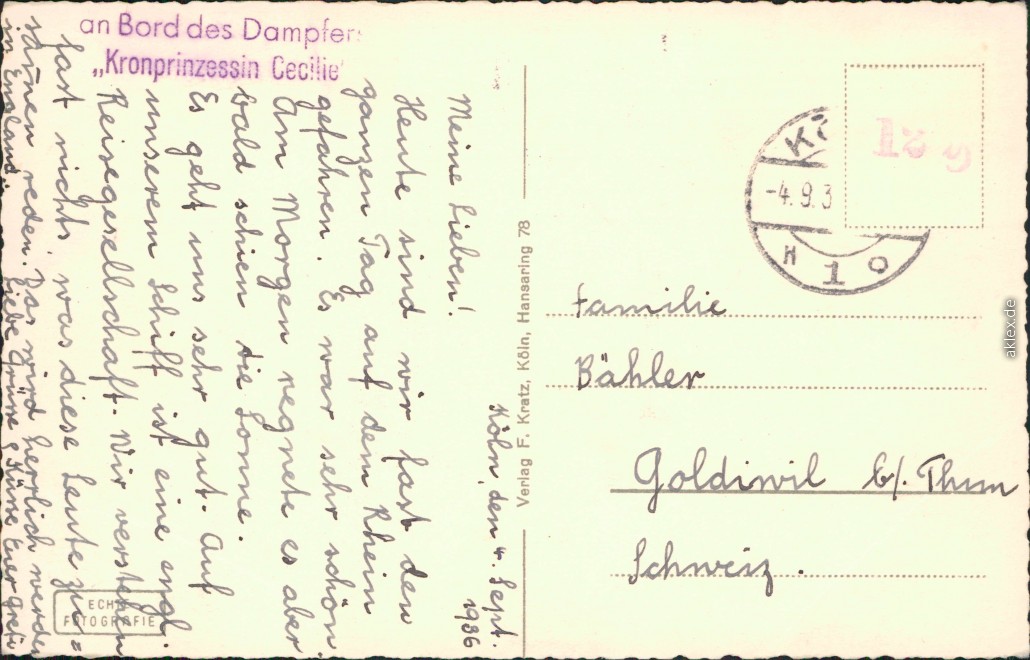 an Bord des Dampfers
„Kronprinzessin Cecilie"
Köln, den 4. Sept.
1936
Meine Lieben!
Heute sind wir fast den
ganzen Tag auf dem Rhein
gefahren. Es war sehr schön.
Am Morgen regnete es aber
bald schien die Sonne.
Es geht uns sehr gut. Auf
unserem Schiff ist eine engl.
Reisegesellschaft. Wir verstehen
fast nichts was diese Leute zu=
sammen reden. Das wird herrlich werden
in England. Liebe Grüsse & Küsse Euer Greti
ECHTE
FOTOGRAFIE
Verlag F. Kratz, Köln, Hansaring 78
-4.9.3
H 1 o
Familie
Bähler
Goldiwil b/. Thun
Schweiz.
aklex.de